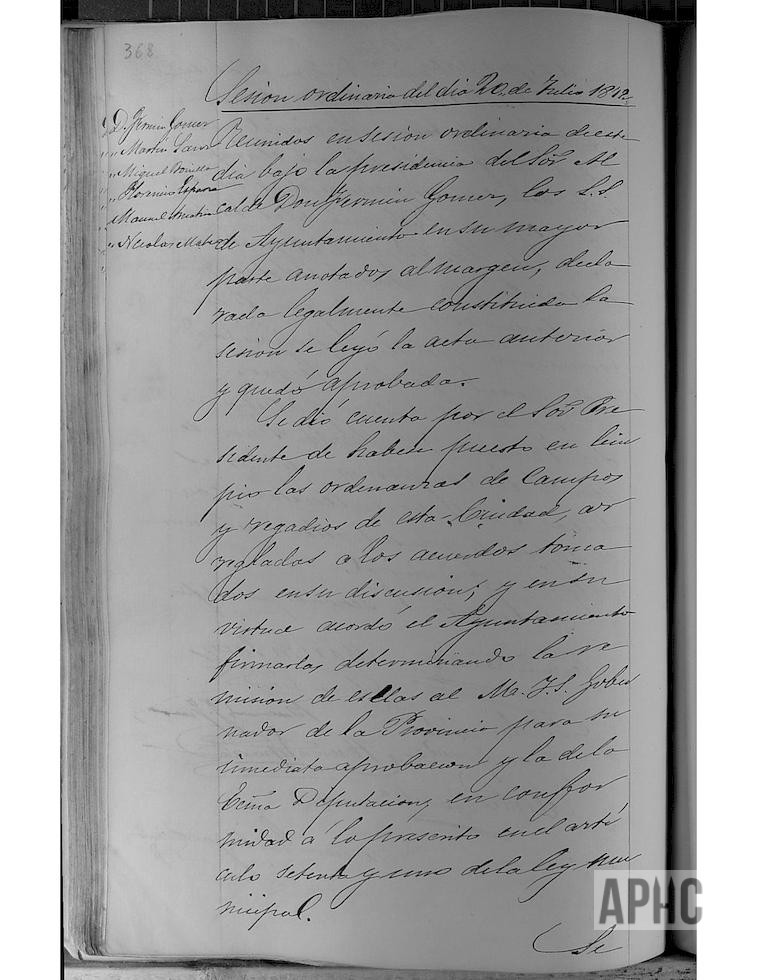 368
Sesion ordinaria del dia 20 de Julio 18
D. Fermin Gomer
" Martin
" Miguel Bonilla
" Florencio España
" Manuel
" Nicolas Mateo
Reunidos en sesion ordinaria de este
dia bajo la presidencia del Sor Al
calde Don Fermin Gomer, los S.S.
de Ayuntamiento en su mayor
parte anotados al margen, decla
rada legalmente constituida la
sesion se leyó la acta anterior
y quedó aprobada.
Se dió cuenta por el Sor Pre
sidente de haber puesto en lim
pio las ordenanzas de Campos
y regadios de esta Ciudad, ar
regladas a los acuerdos toma
dos en su discusion; y en su
virtud acordó el Ayuntamiento
firmarlas, determinando la re
mision de ellas al M. I. S. Gober
nador de la Provincia para su
inmediata aprobacion y la de la
Ecma Diputacion, en confor
midad á lo prescrito en el arti
culo setenta y uno de la ley mu
nicipal.
Se
APHC